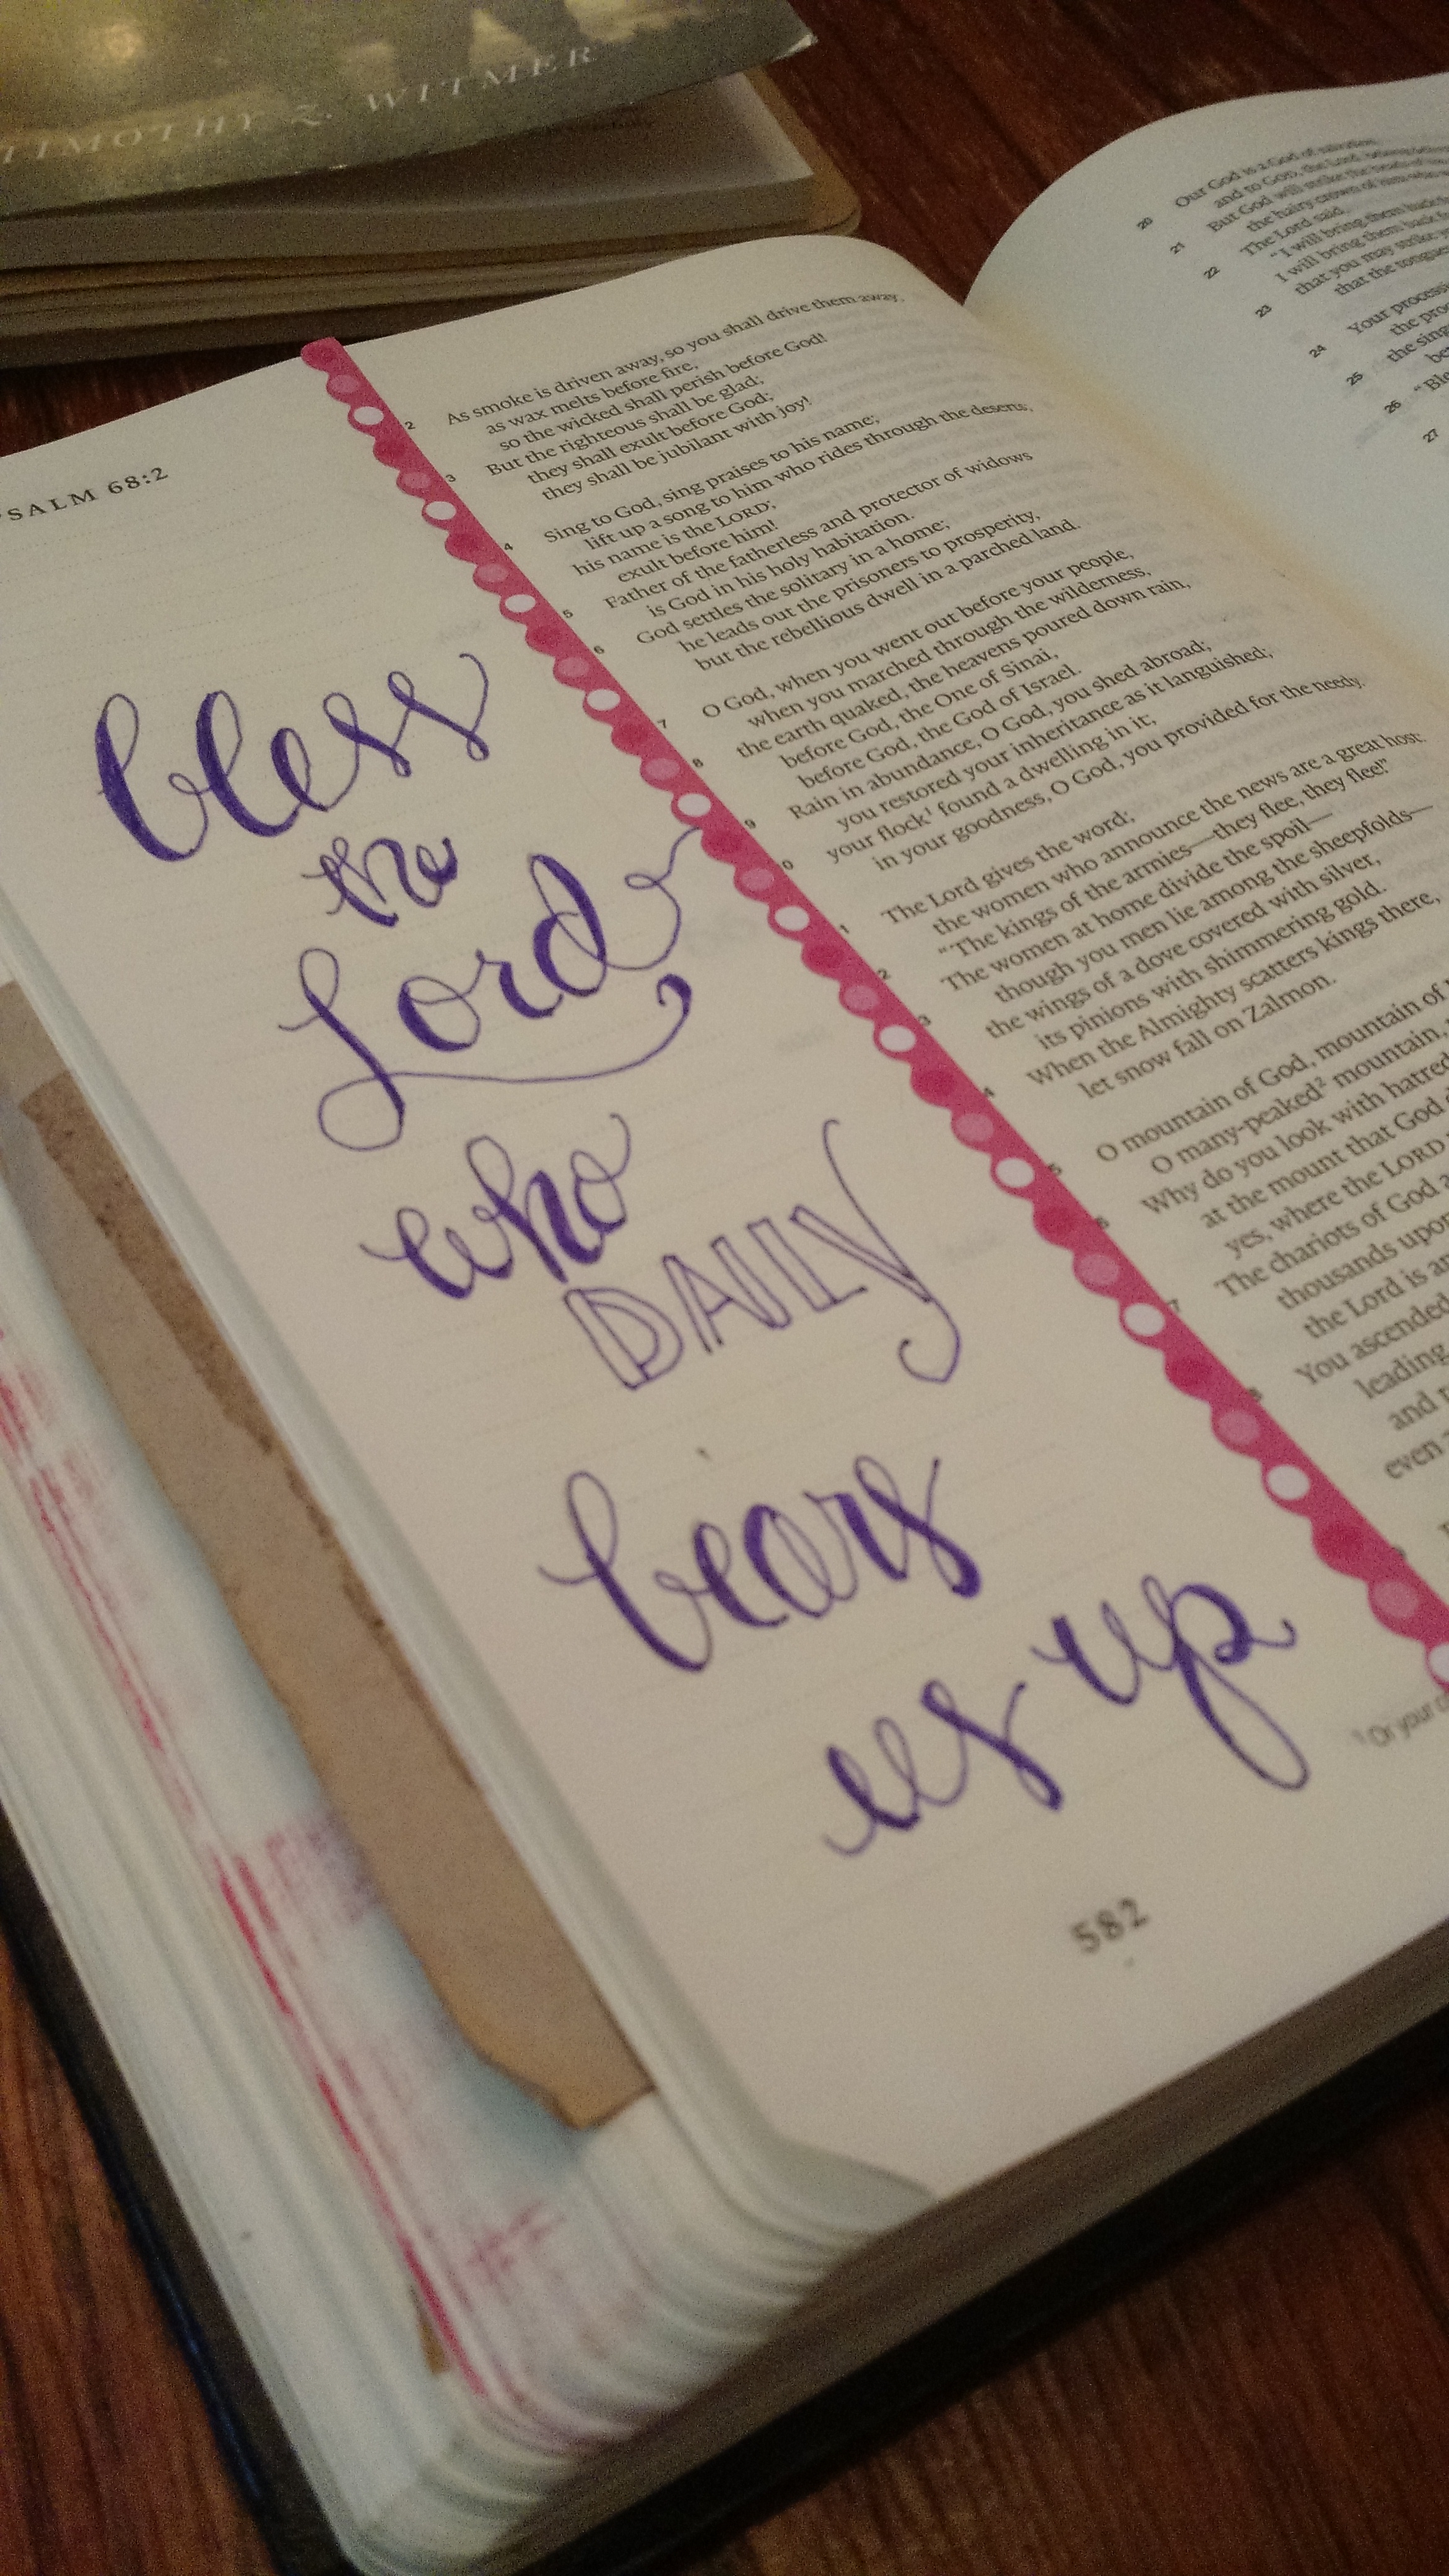 TIMOTHY Z. WITMER
PSALM 68:2
bless
the
Lord
who
DAILY
bears
us up
582
2 As smoke is driven away, so you shall drive them away;
as wax melts before fire,
so the wicked shall perish before God!
3 But the righteous shall be glad;
they shall exult before God;
they shall be jubilant with joy!
4 Sing to God, sing praises to his name;
lift up a song to him who rides through the deserts;
his name is the LORD;
exult before him!
5 Father of the fatherless and protector of widows
is God in his holy habitation.
6 God settles the solitary in a home;
he leads out the prisoners to prosperity,
but the rebellious dwell in a parched land.
7 O God, when you went out before your people,
when you marched through the wilderness,
8 the earth quaked, the heavens poured down rain,
before God, the One of Sinai,
before God, the God of Israel.
9 Rain in abundance, O God, you shed abroad;
you restored your inheritance as it languished;
0 your flock¹ found a dwelling in it;
in your goodness, O God, you provided for the needy.
1 The Lord gives the word;
the women who announce the news are a great host:
2 "The kings of the armies—they flee, they flee!"
The women at home divide the spoil—
3 though you men lie among the sheepfolds—
the wings of a dove covered with silver,
its pinions with shimmering gold.
4 When the Almighty scatters kings there,
let snow fall on Zalmon.
5 O mountain of God, mountain of
O many-peaked² mountain,
6 Why do you look with hatred
at the mount that God
yes, where the LORD
7 The chariots of God
thousands upon
the Lord is
8 You ascended
leading
and
even
¹ Or your
20 Our God is a God of salvation,
and to GOD, the Lord, belong
21 But God will strike the heads of
the hairy crown of him who
22 The Lord said,
"I will bring them back
I will bring them back
23 that you may strike
that the tongues
24 Your process
the pro
25 the sing
be
26 "Ble
27